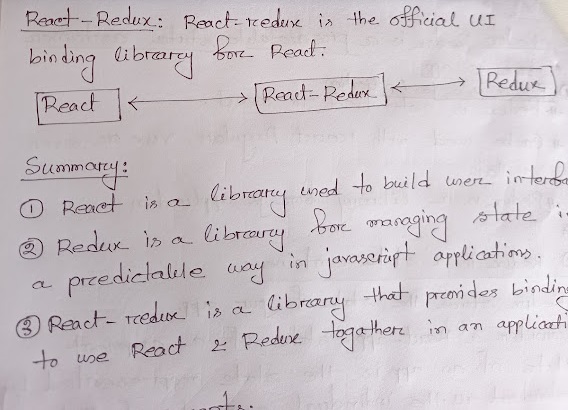 React-Redux: React-redux is the official UI
binding library for React.
React React-Redux Redux
Summary:
① React is a library used to build user interfa
② Redux is a library for managing state i
a predictable way in javascript applications.
③ React-redux is a library that provides binding
to use React & Redux togather in an applicati